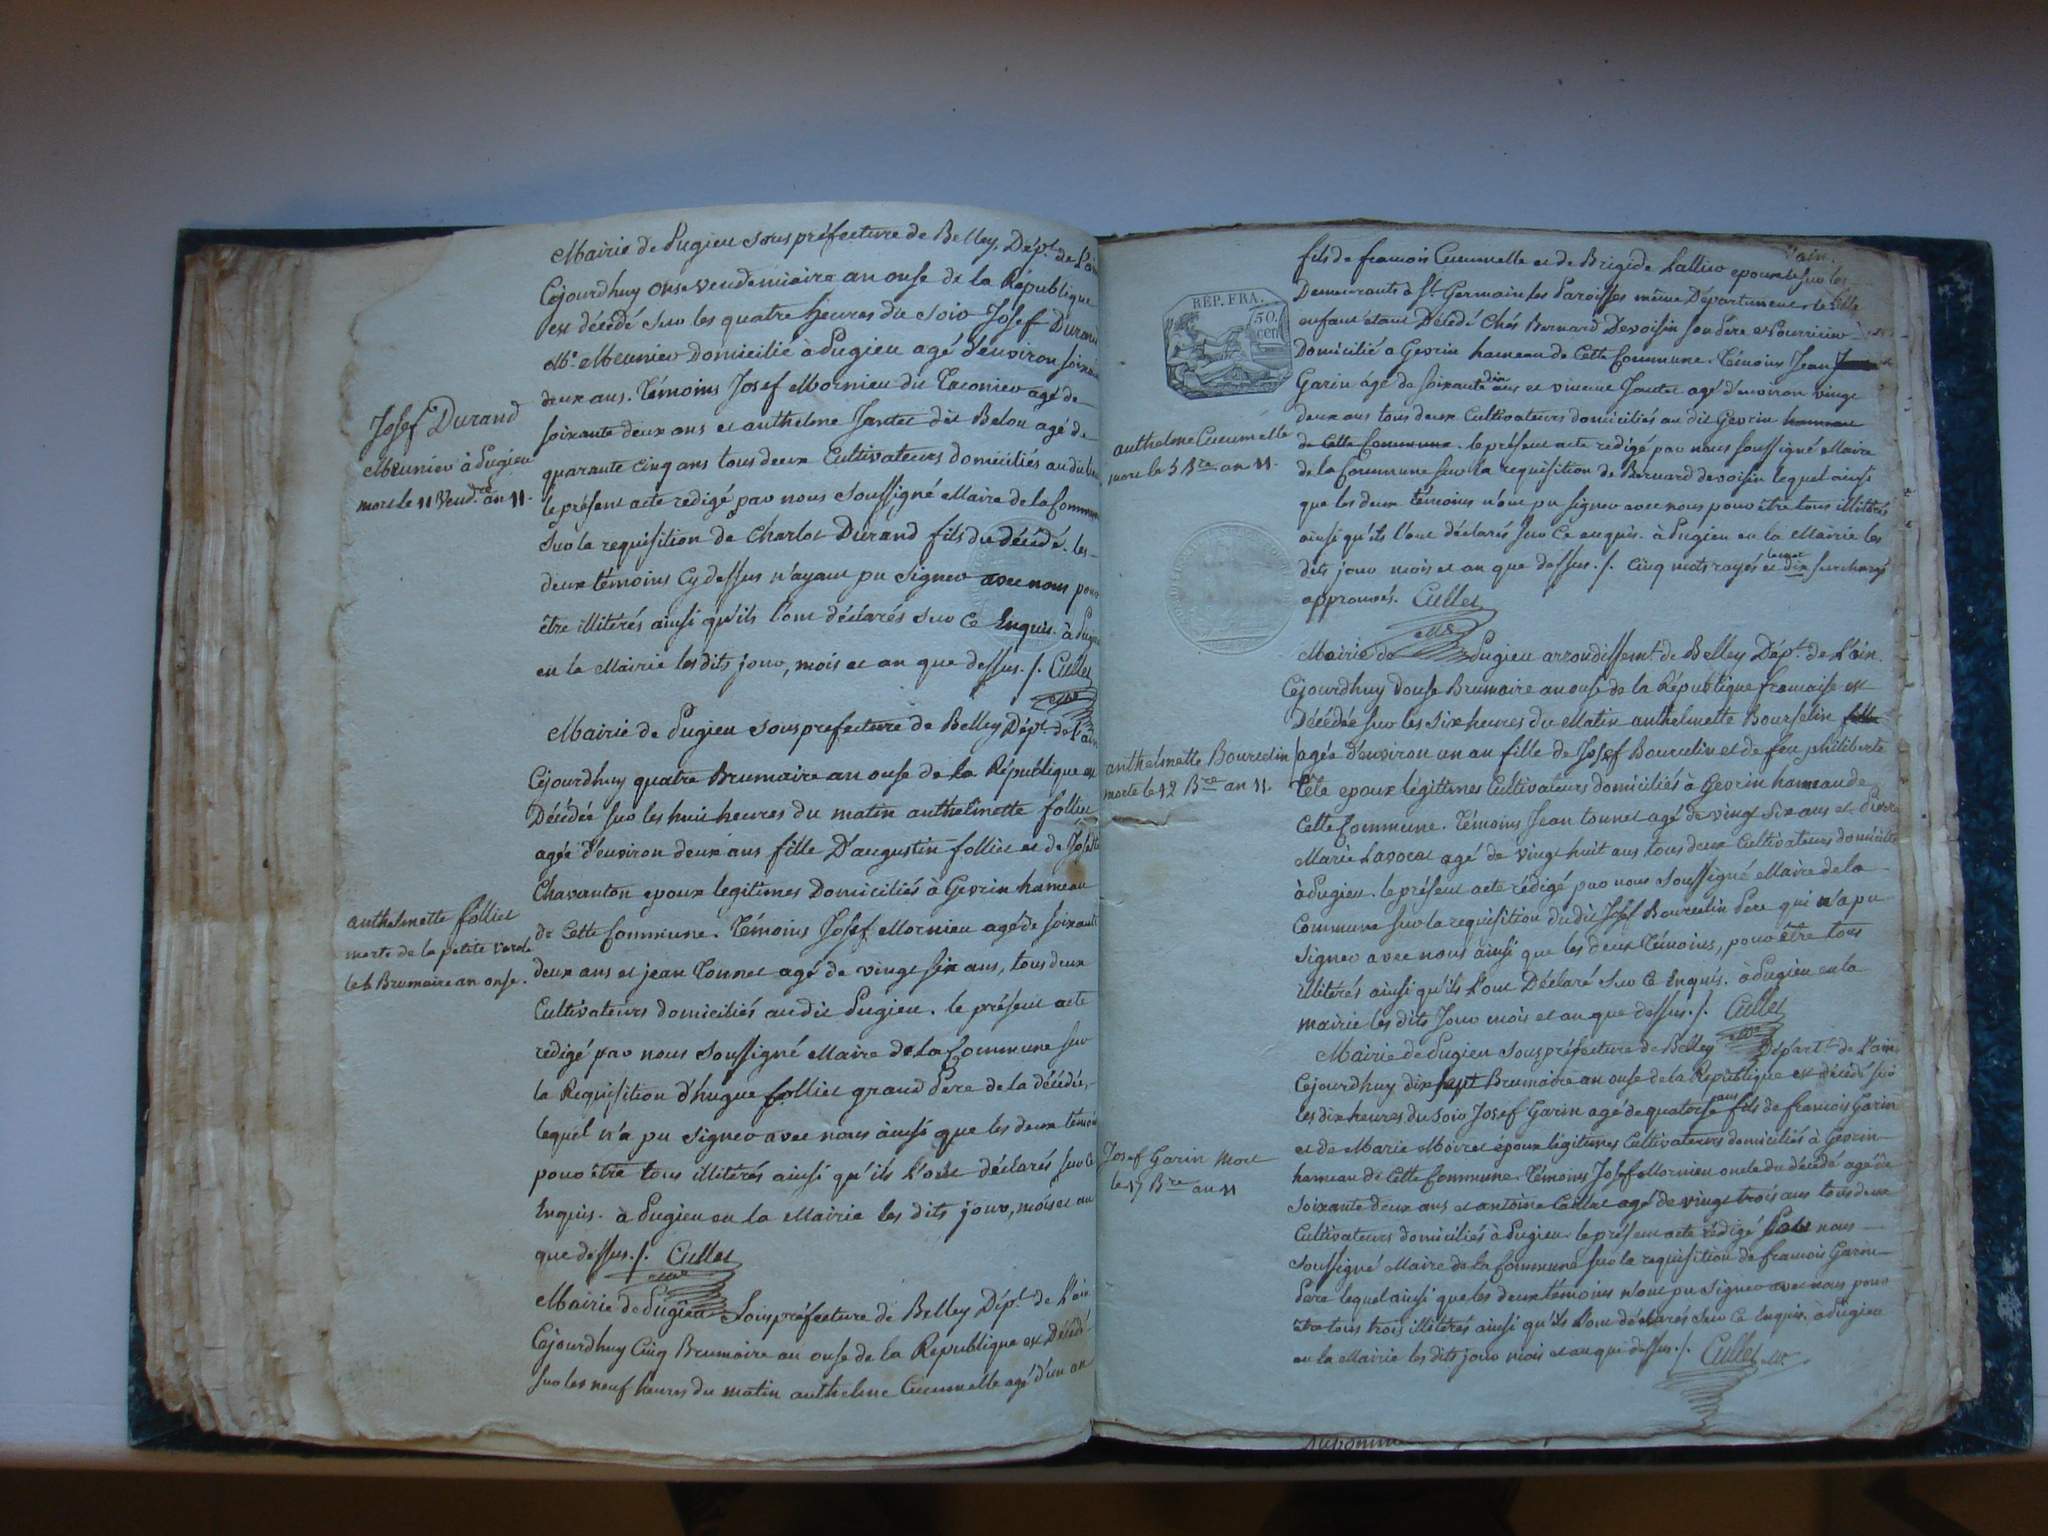 Mairie de Pugieu souspréfecture de Belley, Dépt. de L'ain
Cejourdhuy onse vendemiaire an onse de la République
est décédé sur les quatre heures du soir Josef Durand
Me. Meunier Domicilié à Pugieu agé d'environ soixante
deux ans. Témoins Josef Mornieu du agé de
soixante deux ans et anthelme Jantet dit Belou agé de
quarante cinq ans tous deux Cultivateurs domiciliés audit
le présent acte redigé par nous Soussigné Maire de la Commune
Sur la requisition de Charlot Durand fils du décédé. les
deux témoins Cy dessus n'ayant pu signer avec nous pour
être illitérés ainsi qu'ils l'ont déclarés sur Ce Enquis. à Pugieu
en la Mairie les dits jour, mois et an que dessus ./. Cullet
Josef Durand
Meunier à Pugieu
mort le 11 Vend.re an 11.
Mairie de Pugieu souspréfecture de Belley Dépt. de L'ain
Cejourdhuy quatre Brumaire an onse de la République est
Décédée sur les huit heures du matin anthelmette folliet
agée d'environ deux ans fille D'augustin folliet et de Josette
Chavanton epoux legitimes Domiciliés à Gevrin hameau
de Cette Commune. Témoins Josef Mornieu agé de soixante
deux ans et jean Tonnet agé de vingt six ans, tous deux
Cultivateurs domiciliés audit Pugieu. le présent acte
redigé par nous Soussigné Maire de La Commune sur
la Requisition d'hugue folliet grand Pere de la décédée,
lequel n'a pu signer avec nous ainsi que les deux témoins
pour être tous illitérés ainsi qu'ils L'ont déclarés sur Ce
Enquis. à Pugieu en la Mairie les dits jour, mois et an
que dessus ./. Cullet
anthelmette folliet
morte de la petite verole
le 4 Brumaire an onse.
Mairie de Pugieu Souspréfecture de Belley Dépt. de L'ain
Cejourdhuy Cinq Brumaire an onse de la République est Décédé
sur les neuf heures du matin anthelme Cucumelle agé d'un an
REP. FRA.
50.
cen
fils de francois Cucumelle et de Brigide Lallier epoux
Demeurants à St. Germain les Paroisses même Département, le dit
enfant étant Décédé Chés Bernard Devoisin son Pere Nourricier
Domicilié a Gevrin hameau de Cette Commune. Témoins Jean
Garin agé de soixante dix ans et vincent Jantet agé d'environ vingt
deux ans tous deux Cultivateurs domiciliés au dit Gevrin hameau
de Cette Commune. le présent acte redigé par nous soussigné Maire
de la Commune sur la requisition de Bernard devoisin lequel ainsi
que les deux témoins n'ont pu signer avec nous pour être tous illitérés
ainsi qu'ils l'ont déclarés sur Ce enquis. à Pugieu en la Mairie les
dits jour mois et an que dessus ./. Cinq mots rayés et dix surchargé
approuvés. Cullet
anthelme Cucumelle
mort le 5 Bre. an 11.
Mairie de Pugieu arrondissemt. de Belley Dépt. de L'ain.
Cejourdhuy douse Brumaire an onse de la République francaise est
Décédée sur les Six heures du Matin anthelmette Bourselin fille
agée d'environ un an fille de Josef Bourcelin et de feu philiberte
Télé epoux légitimes Cultivateurs domiciliés à Gevrin hameau de
Cette Commune. Témoins Jean tonnet agé de vingt Six ans et Pierre
Marie Lavocat agé de vingt huit ans tous deux Cultivateurs domiciliés
à Pugieu. le présent acte rédigé par nous Soussigné Maire de la
Commune sur la requisition dudit Josef Bourcelin Pere qui n'a pu
signer avec nous ainsi que les deux Témoins, pour être tous
illitérés ainsi qu'ils L'ont Déclaré sur Ce Enquis. à Pugieu en la
mairie les dits Jour mois et an que dessus ./. Cullet
anthelmette Bourcelin
morte le 12 Bre. an 11.
Mairie de Pugieu Souspréfecture de Belley Départt. de L'ain.
Cejourdhuy dix sept Brumaire an onse de la République est décédé sur
les dix heures du Soir Josef Garin agé de quatorse ans fils de francois Garin
et de Marie Moiret époux légitimes Cultivateurs domiciliés à Gevrin
hameau de Cette Commune. Témoins Josef Mornieu oncle du décédé agé de
soixante deux ans et antoine Caillat agé de vingt trois ans tous deux
Cultivateurs domiciliés à Pugieu. le présent acte rédigé par nous
soussigné Maire de la Commune sur la requisition de francois Garin
Pere lequel ainsi que les deux témoins n'ont pu signer avec nous pour
être tous trois illitérés ainsi qu'ils l'ont déclarés sur Ce Enquis. à Pugieu
en la Mairie les dits jour mois et an que dessus ./. Cullet
Josef Garin mort
le 17 Bre. an 11